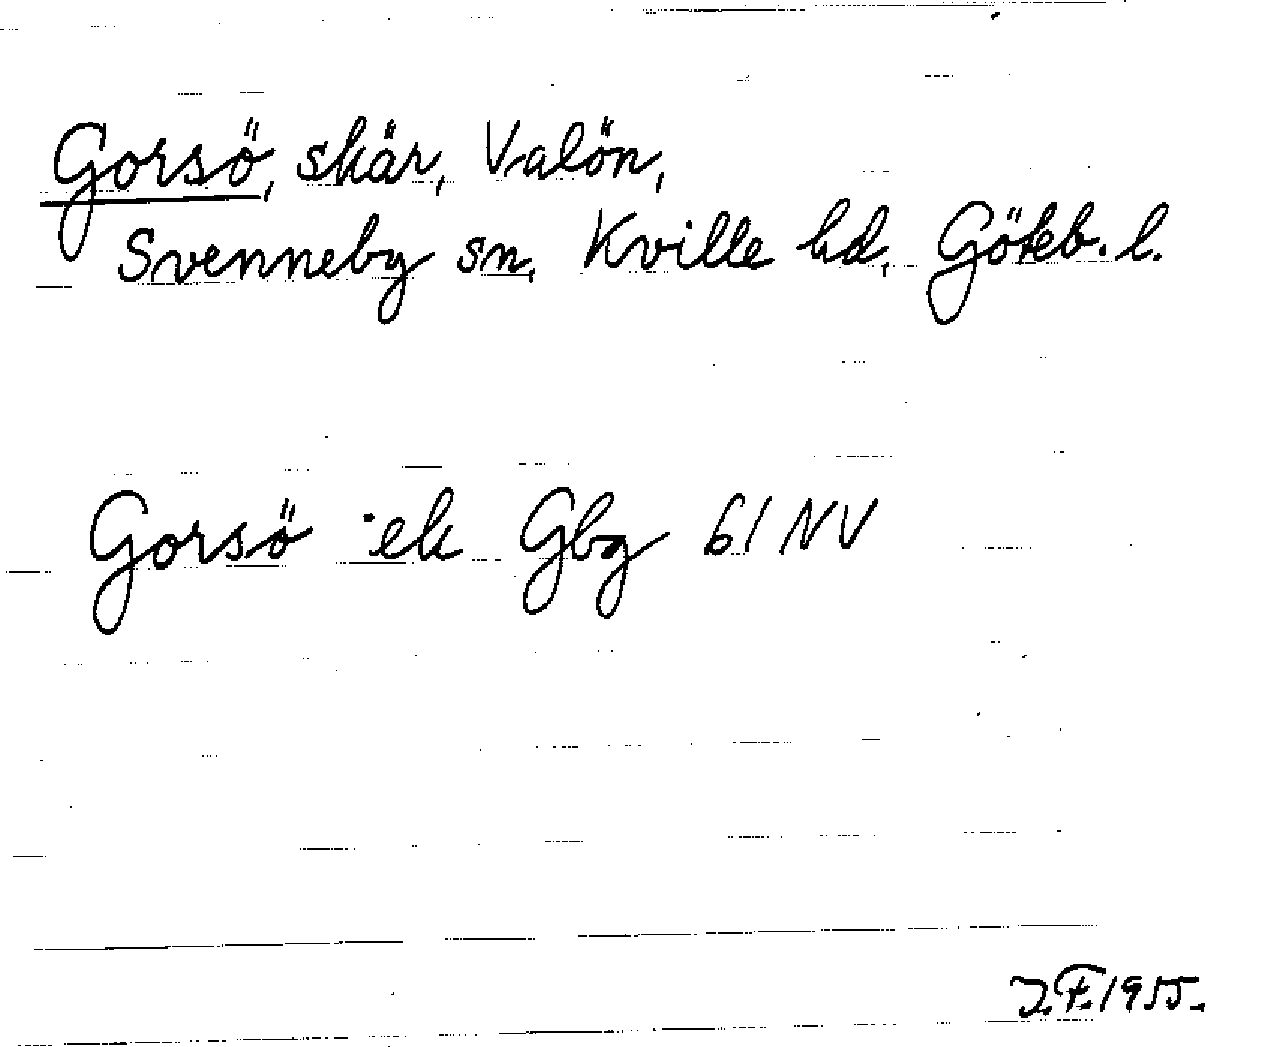 Gorsö, skär, Valön,
Svenneby sn, Kville hd, Göteb. l.
Gorsö ek Gbg 61 NV
J.F. 1955.